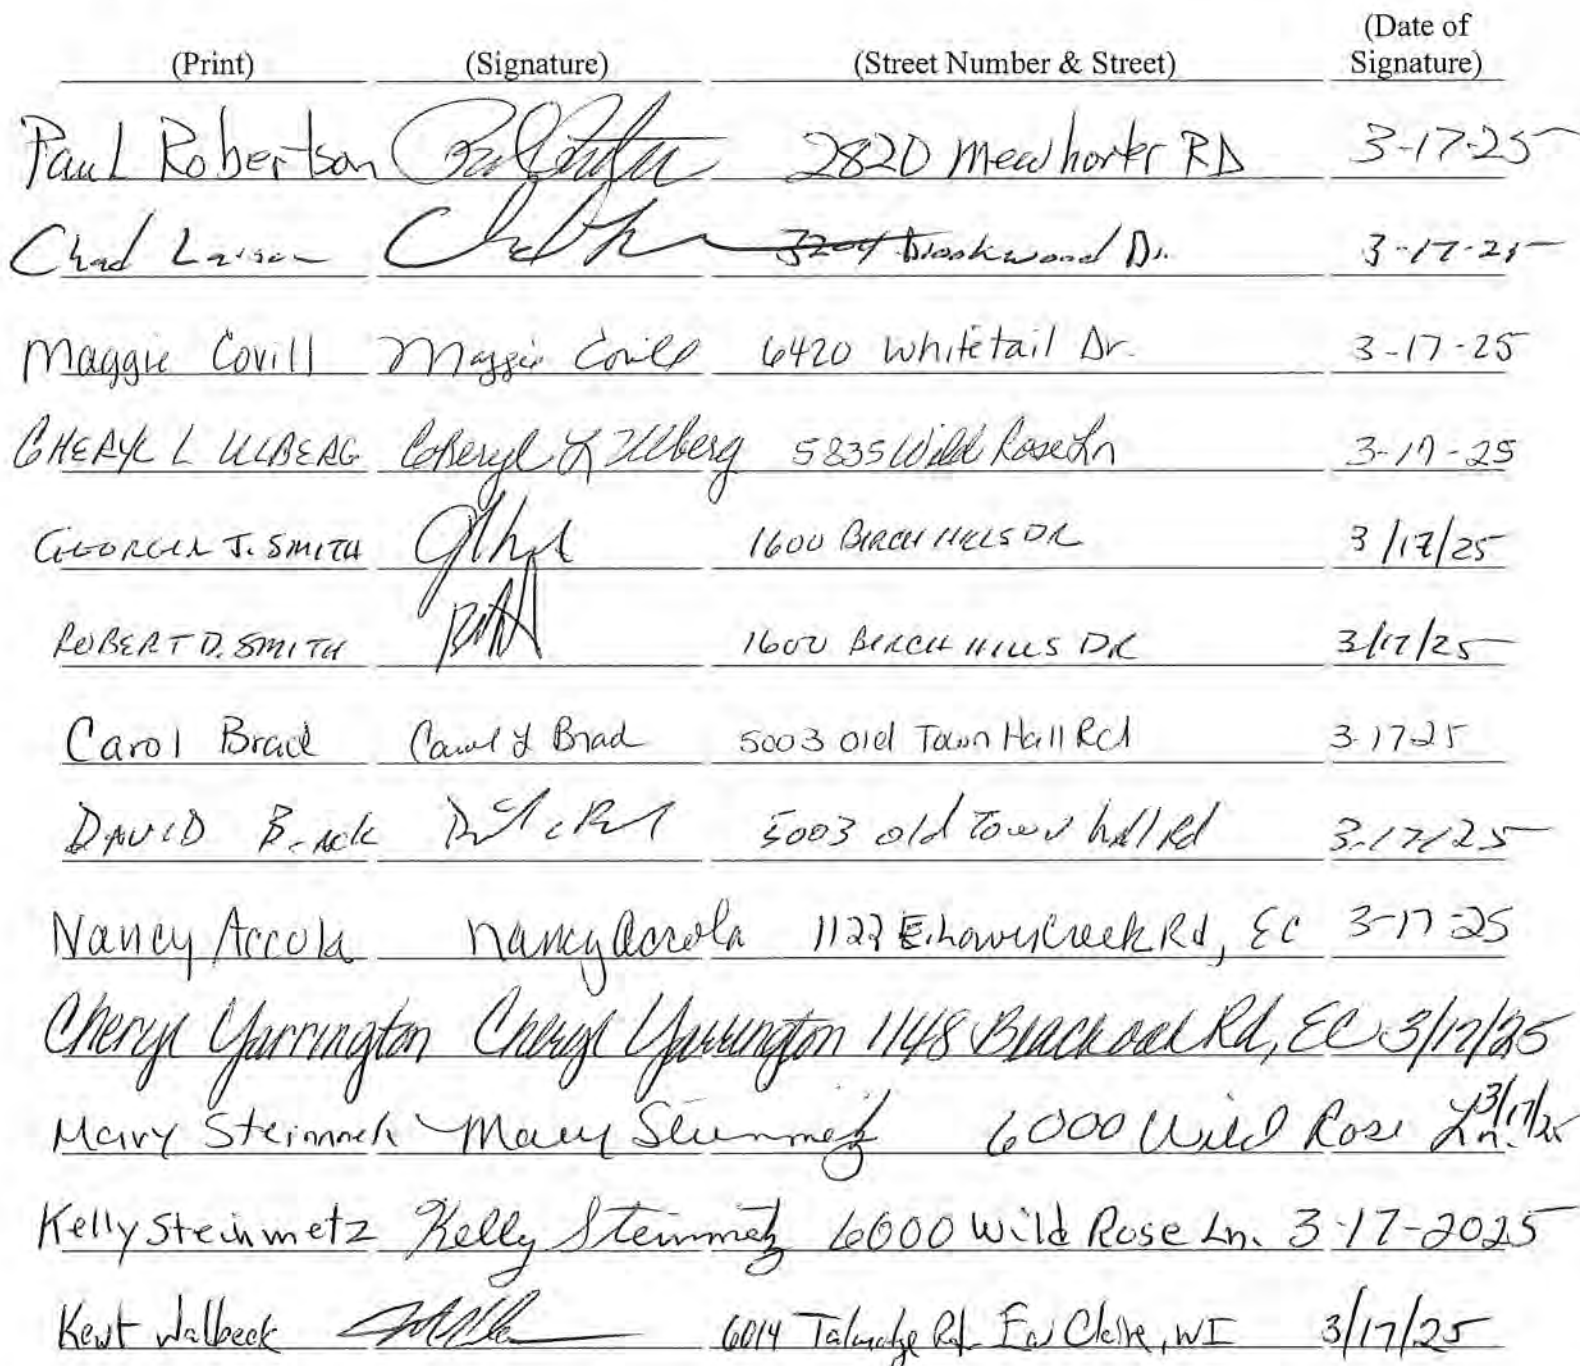 (Print) (Signature) (Street Number & Street) (Date of Signature)
Paul Robertson 2820 Mewhorter RD 3-17-25
Chad Larson 3204 Brookwood Dr. 3-17-25
Maggie Covill Maggie Covill 6420 Whitetail Dr. 3-17-25
CHERYL L ULBERG Cheryl L Ulberg 5835 Wild Rose Ln 3-17-25
J. SMITH 1600 BIRCH HILLS DR 3/17/25
ROBERT D. SMITH 1600 BIRCH HILLS DR 3/17/25
Carol Brad Carol L Brad 5003 Old Town Hall Rd 3-17-25
DAVID 5003 old Town hall Rd 3-17-25
Nancy Accola Nancy Accola 1122 E. Lowes Creek Rd, EC 3-17-25
Cheryl Yarrington Cheryl Yarrington 1148 Rd, EC 3/17/25
Mary Mary Steinmetz 6000 Wild Rose Ln. 3/17/25
Kelly Steinmetz Kelly Steinmetz 6000 Wild Rose Ln. 3-17-2025
Kent Walbeck 6014 Talmadge Rd Eau Claire, WI 3/17/25